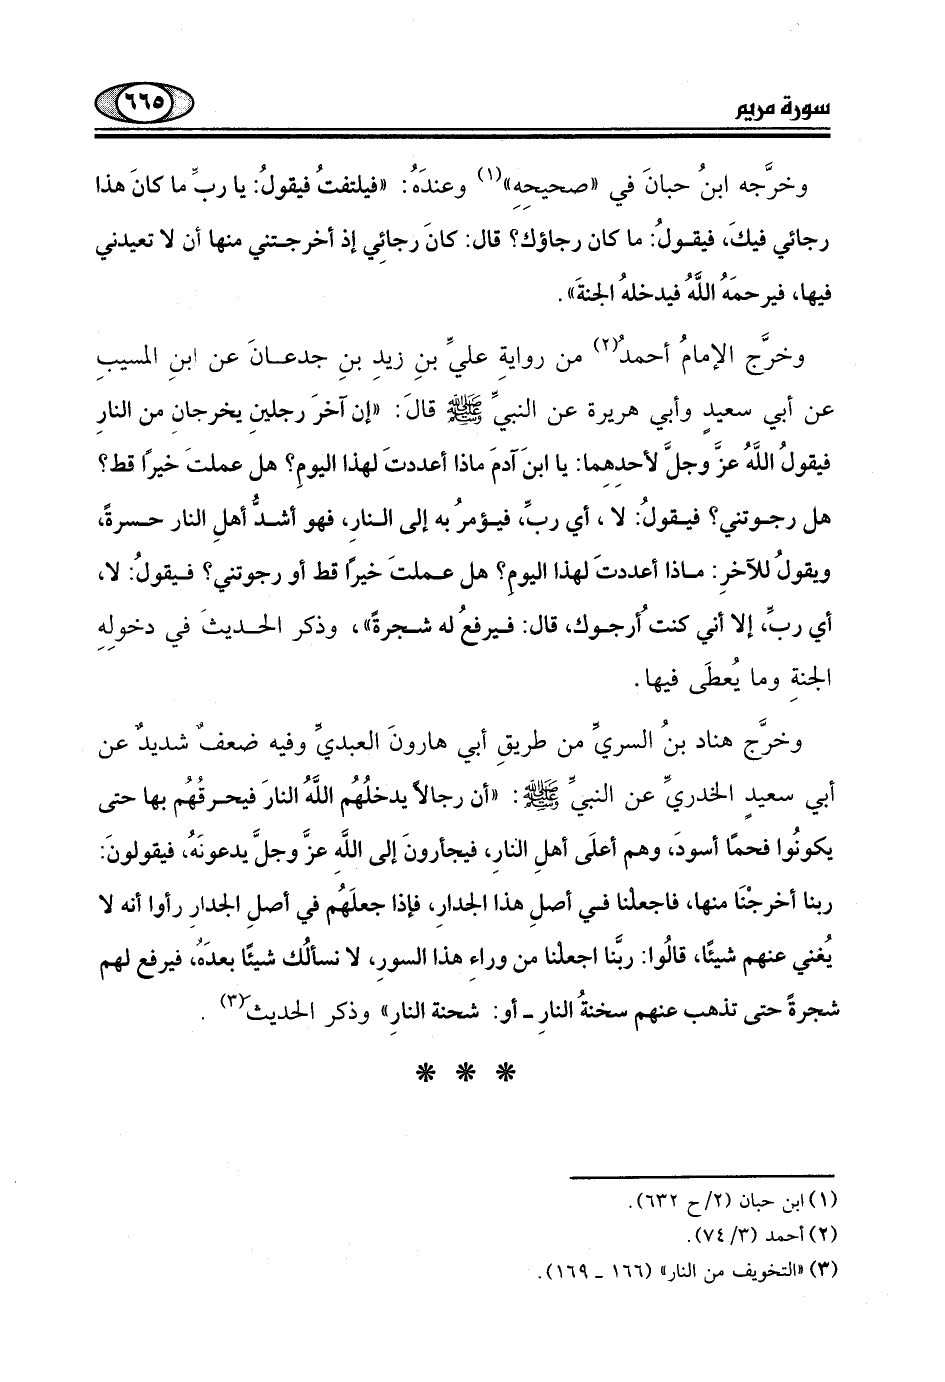 سورة مريم
٦٦٥
وخرَّجه ابنُ حبانَ في «صحيحِهِ»(١) وعندَهُ: «فيلتفتُ فيقولُ: يا ربِّ ما كانَ هذا
رجائي فيكَ، فيقولُ: ما كان رجاؤك؟ قال: كانَ رجائِي إذ أخرجتني منها أن لا تعيدني
فيها، فيرحمَهُ اللَّهُ فيدخلهُ الجنةَ».
وخرَّج الإمامُ أحمدُ(٢) من روايةِ عليِّ بنِ زيدِ بنِ جدعانَ عن ابنِ المسيبِ
عن أبي سعيدٍ وأبي هريرة عن النبيِّ ﷺ قالَ: «إن آخرَ رجلينِ يخرجانِ من النارِ
فيقولُ اللَّهُ عزَّ وجلَّ لأحدِهِما: يا ابنَ آدمَ ماذا أعددتَ لهذا اليومِ؟ هل عملتَ خيرًا قط؟
هل رجوتني؟ فيقولُ: لا ، أي ربِّ، فيؤمرُ به إلى النارِ، فهو أشدُّ أهلِ النار حسرةً،
ويقولُ للآخرِ: ماذا أعددتَ لهذا اليومِ؟ هل عملتَ خيرًا قط أو رجوتني؟ فيقولُ: لا،
أي ربِّ، إلا أني كنت أُرجوك، قال: فيرفعُ له شجرةً»، وذكر الحديثَ في دخولِهِ
الجنةِ وما يُعطَى فيها.
وخرَّج هناد بنُ السريِّ من طريقِ أبي هارونَ العبديِّ وفيه ضعفٌ شديدٌ عن
أبي سعيدٍ الخدريِّ عن النبيِّ ﷺ: «أن رجالاً يدخلُهُم اللَّهُ النارَ فيحرقُهُم بها حتى
يكونُوا فحمًا أسودَ، وهم أعلَى أهلِ النارِ، فيجأرونَ إلى اللَّهِ عزَّ وجلَّ يدعونَهُ، فيقولونَ:
ربنا أخرجْنَا منها، فاجعلْنا في أصلِ هذا الجدارِ، فإذا جعلَهُم في أصلِ الجدارِ رأوا أنه لا
يُغني عنهم شيئًا، قالُوا: ربَّنا اجعلنا من وراءِ هذا السورِ، لا نسألُك شيئًا بعدَهُ، فيرفع لهم
شجرةً حتى تذهب عنهم سخنةُ النارِ ـ أو: شحنة النارِ» وذكر الحديثَ(٣) .
* * *
(١) ابن حبان (٢/ح ٦٣٢).
(٢) أحمد (٣/ ٧٤).
(٣) «التخويف من النار» (١٦٦ ـ ١٦٩).